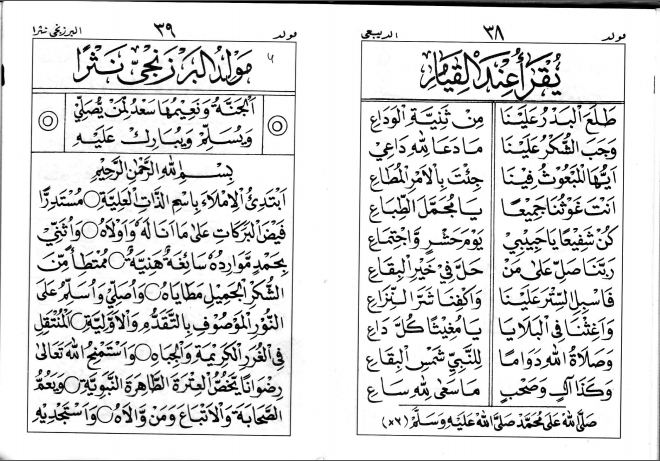 مولد ٣٨ الديبعي
يُقْرَأُ عِنْدَ الْقِيَامِ
طَلَعَ الْبَدْرُ عَلَيْنَا مِنْ ثَنِيَّةِ الْوَدَاعِ
وَجَبَ الشُّكْرُ عَلَيْنَا مَا دَعَا لِلّٰهِ دَاعِيْ
اَيُّهَا الْمَبْعُوثُ فِيْنَا جِئْتَ بِالْأَمْرِ الْمُطَاعِ
اَنْتَ غَوْثُنَا جَمِيْعًا يَا مُجَمَّلَ الطِّبَاعِ
كُنْ شَفِيْعًا يَا حَبِيْبِيْ يَوْمَ حَشْرٍ وَاجْتِمَاعِ
رَبَّنَا صَلِّ عَلَى مَنْ حَلَّ فِيْ خَيْرِ الْبِقَاعِ
فَاسْبِلِ السِّتْرَ عَلَيْنَا وَاكْفِنَا شَرَّ النِّزَاعِ
وَاَغِثْنَا فِى الْبَلَايَا يَا مُغِيْثًا كُلَّ دَاعِ
وَصَلَاةُ اللهِ دَوَامًا لِلنَّبِيِّ شَمْسِ الْبِقَاعِ
وَكَذَا آلٍ وَصَحْبٍ مَا سَعَى لِلّٰهِ سَاعِ
صَلَّى اللهُ عَلَى مُحَمَّدْ صَلَّى اللهُ عَلَيْهِ وَسَلَّمْ (٢x)
مولد ٣٩ البرزنجى نثرا
مَوْلِدُ الْبَرْزَنْجِيّ نَثْرًا
اَلْجَنَّةُ وَنَعِيْمُهَا سَعْدٌ لِمَنْ يُصَلِّيْ
وَيُسَلِّمُ وَيُبَارِكُ عَلَيْهِ
بِسْمِ اللهِ الرَّحْمٰنِ الرَّحِيْمِ
اَبْتَدِئُ الْاِمْلَاءَ بِاسْمِ الذَّاتِ الْعَلِيَّةِ ۝ مُسْتَدِرًّا
فَيْضَ الْبَرَكَاتِ عَلَى مَا اَنَالَهُ وَاَوْلَاهُ ۝ وَاُثَنِّيْ
بِحَمْدٍ مَوَارِدُهُ سَائِغَةٌ هَنِيَّةٌ ۝ مُمْتَطِأً مِنَ
الشُّكْرِ الْجَمِيْلِ مَطَايَاهُ ۝ وَاُصَلِّيْ وَاُسَلِّمُ عَلَى
النُّوْرِ الْمَوْصُوْفِ بِالتَّقَدُّمِ وَالْاَوَّلِيَّةِ ۝ اَلْمُنْتَقِلِ
فِى الْغُرَرِ الْكَرِيْمَةِ وَالْجِبَاهِ ۝ وَاَسْتَمْنِحُ اللهَ تَعَالَى
رِضْوَانًا يَخُصُّ الْعِتْرَةَ الطَّاهِرَةَ النَّبَوِيَّةَ ۝ وَيَعُمُّ
الصَّحَابَةَ وَالْاَتْبَاعَ وَمَنْ وَّالَاهُ ۝ وَاَسْتَجْدِيْهِ